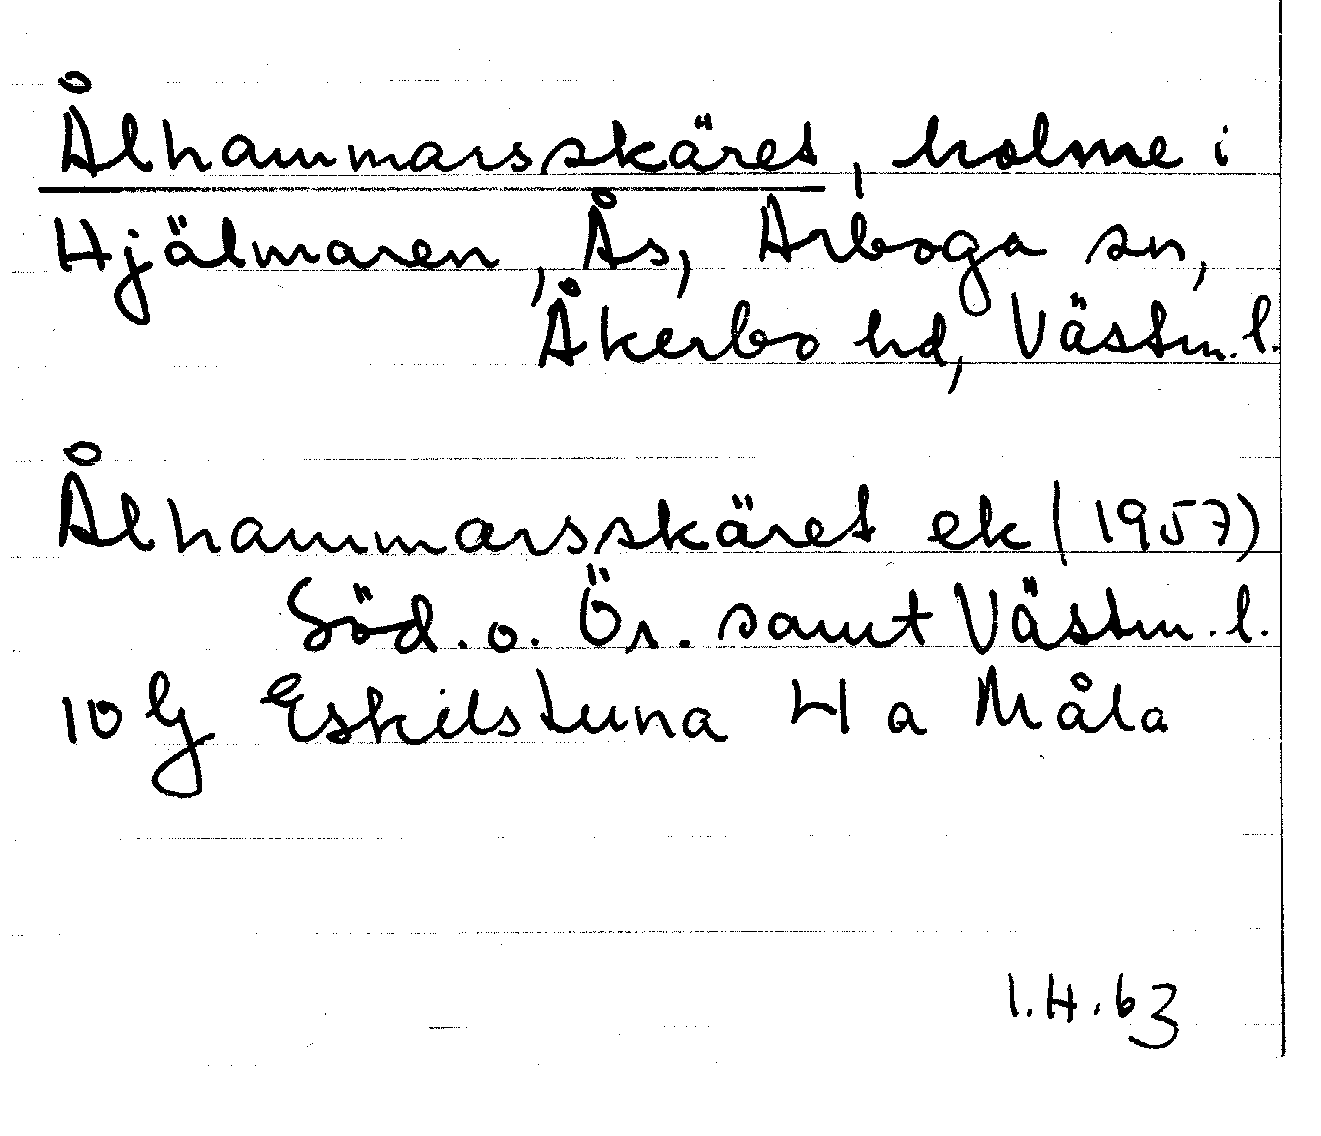 Ålhammarsskäret, holme i
Hjälmaren, Ås, Arboga sn,
Åkerbo hd, Västm. l.
Ålhammarsskäret ek (1957)
Söd. o. Ör. samt Västm. l.
10 G Eskilstuna H a Måla
I.H. 63